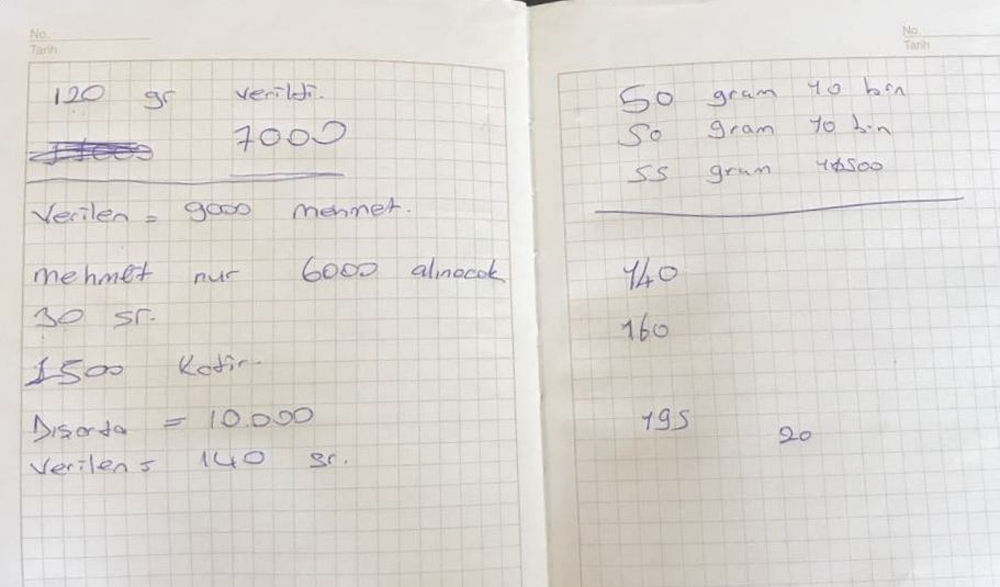 No.
Tarih
120 gr verildi.
7000
Verilen = 9000 mehmet.
mehmet nur 6000 alınacak
30 gr.
1500 Kadir.
Dışarda = 10.000
Verilen = 140 gr.
No.
Tarih
50 gram 10 bin
50 gram 10 bin
55 gram
140
160
195
20